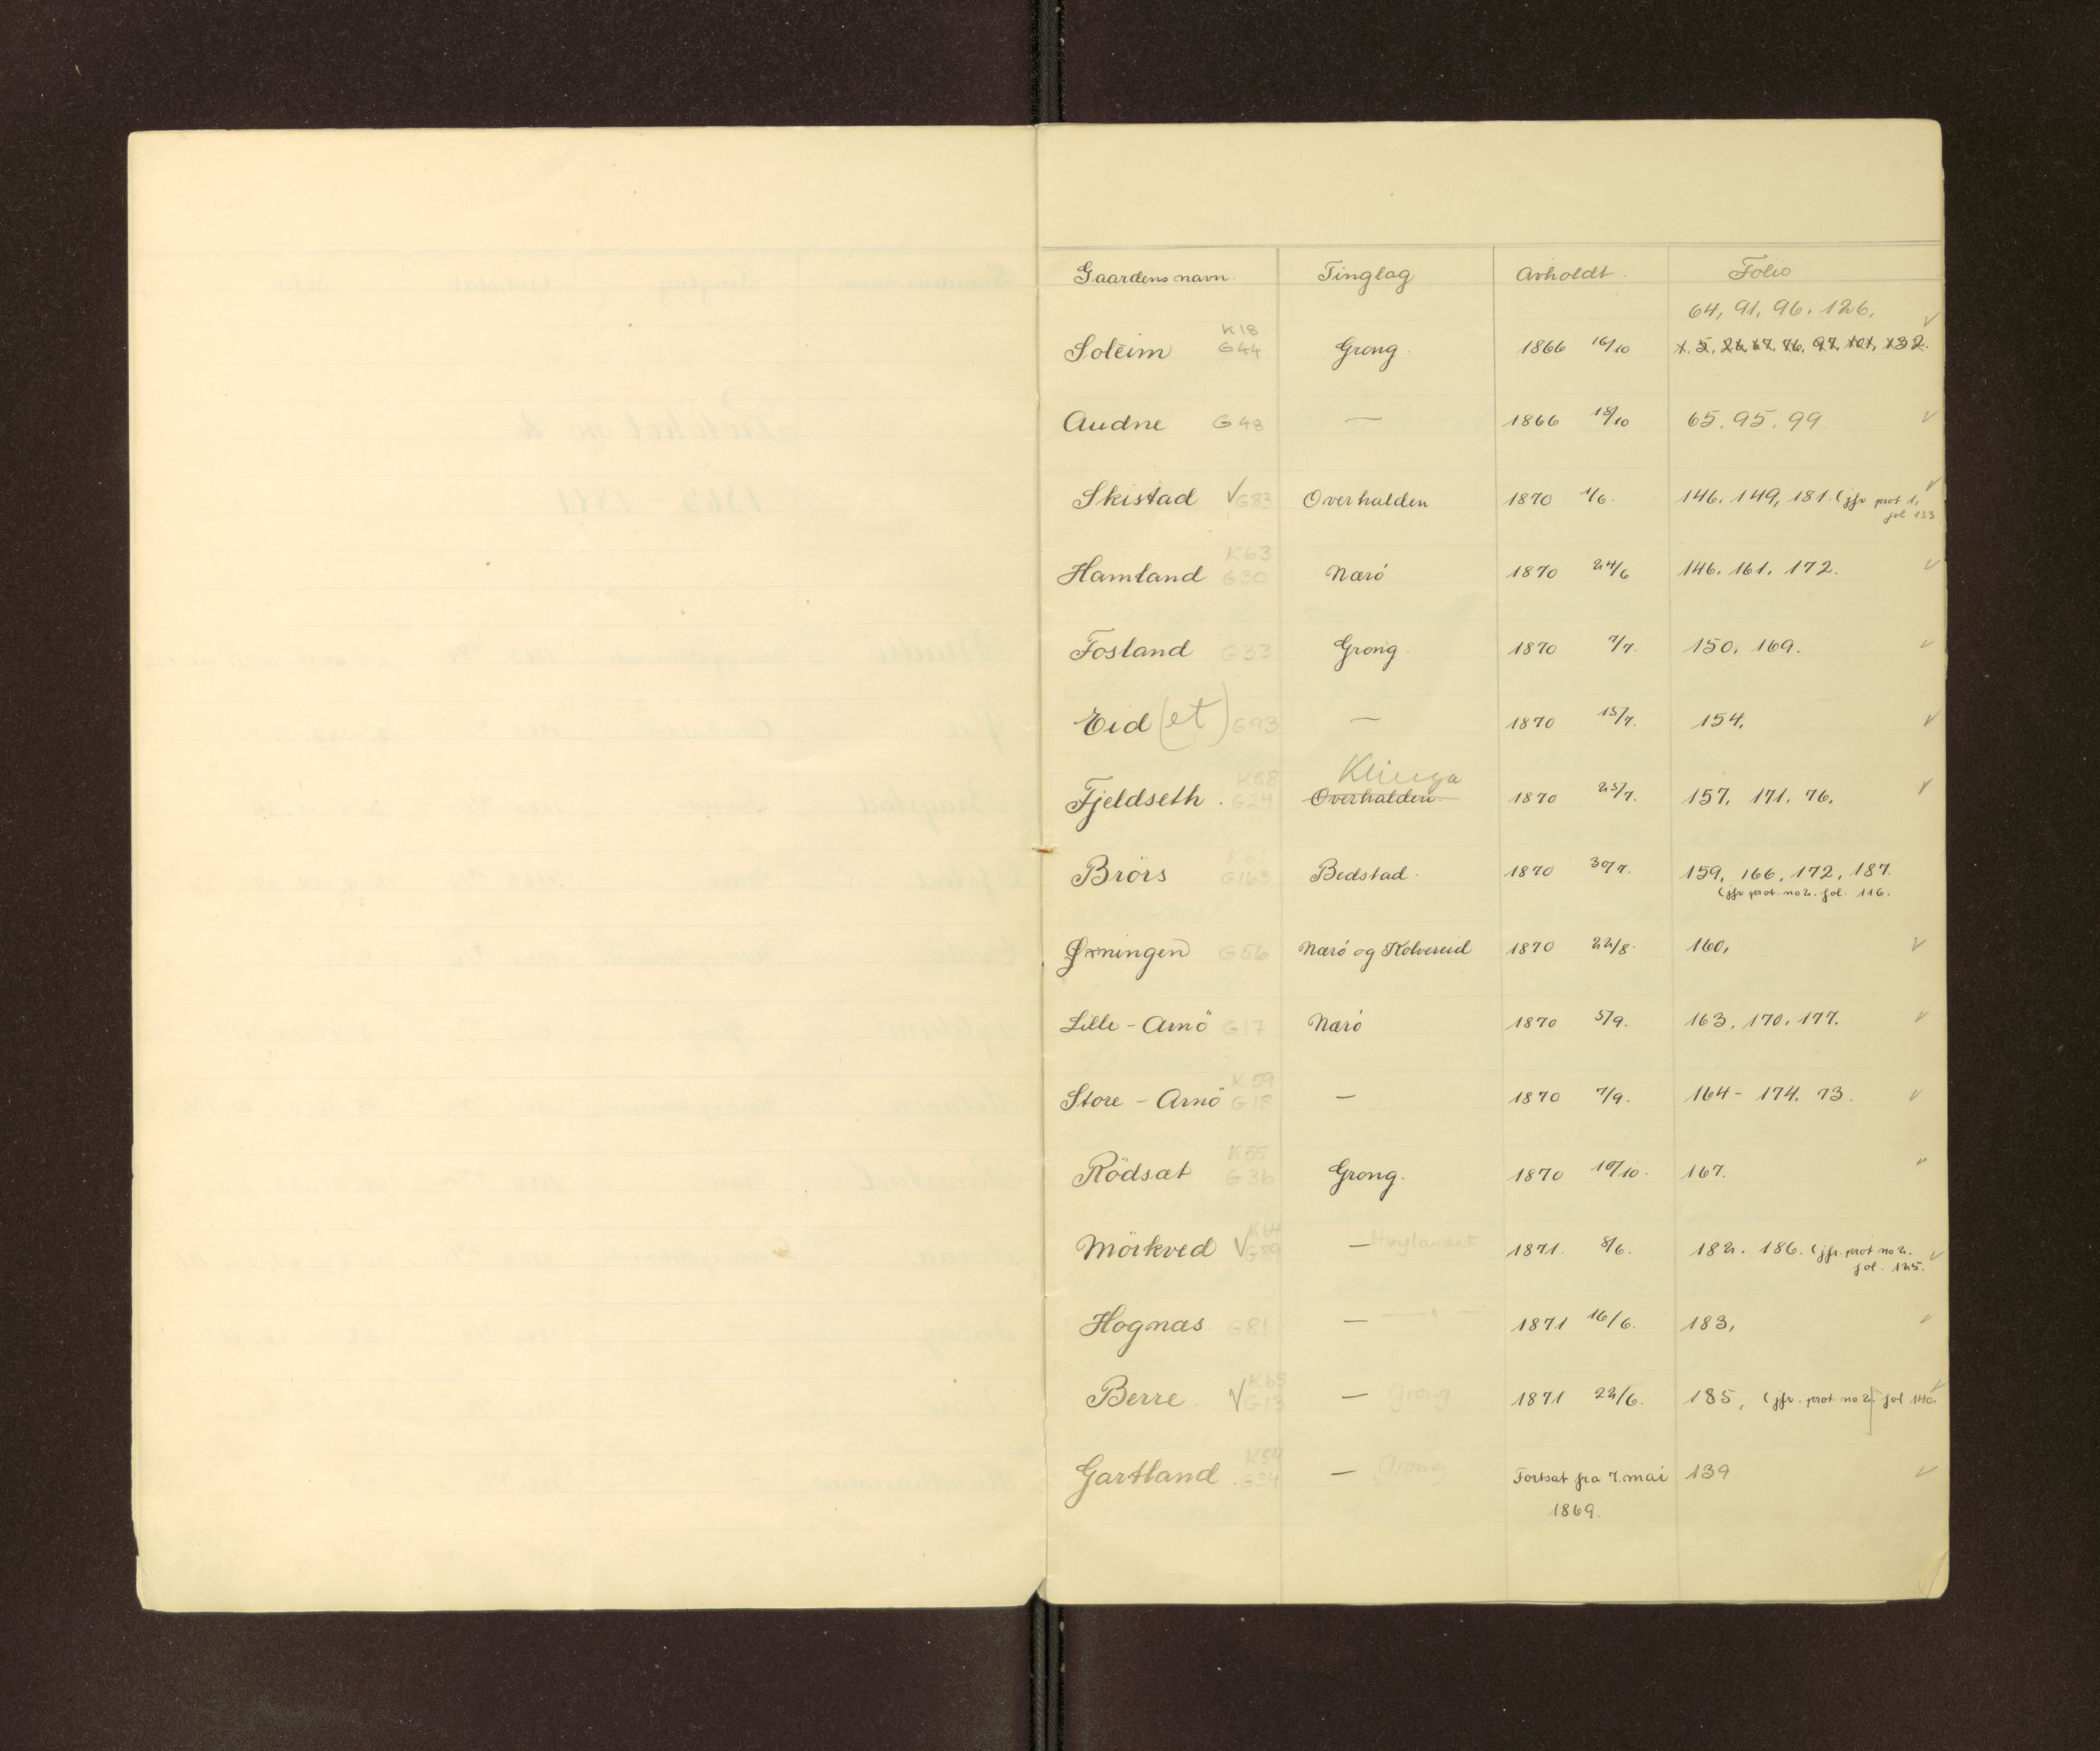 Gaardens navn. Tinglag Avholdt. Folio
64, 91, 96, 126, √
K18
Soleim G44 Grong. 1866 16/10 1. 5, 26, 67, 76, 97, 101, 132.
Audne G48 — 1866 18/10 65. 95. 99 √
Skistad √ G83 Overhalden 1870 1/6. 146. 149, 181. (jfr prot 1, √
fol 133
K63
Hamland G30 Nærö 1870 24/6 146. 161. 172. √
Fosland G33 Grong. 1870 7/7. 150, 169. √
Eid (et) G93 — 1870 15/7. 154. √
K58 Klinga
Fjeldseth. G24 Overhalden. 1870 25/7. 157, 171. 76. √
K61
Brörs G163 Bedstad. 1870 30/7. 159, 166, 172, 187.
(jfr prot no 2. fol. 116.
Øxningen G56 Nærö og Kolvereid 1870 22/8. 160, √
Lille - Arnö G17 Nærö 1870 5/9. 163. 170. 177. √
K59
Store - Arnö G18 — 1870 7/9. 164 - 174. 73. √
K55
Rödsæt G36 Grong. 1870 10/10. 167. √
K64
Mörkved √ G89 — Høylandet 1871. 8/6. 182. 186. (jfr. prot no 2. √
fol. 125.
Hognæs. G81 — — " — 1871 16/6. 183, √
K65
Berre. √ G13 — Grong 1871 22/6. 185, (jfr. prot no 2. fol 140. √
K54
Gartland. G34 — Grong Fortsat fra 7. mai 139. √
1869.